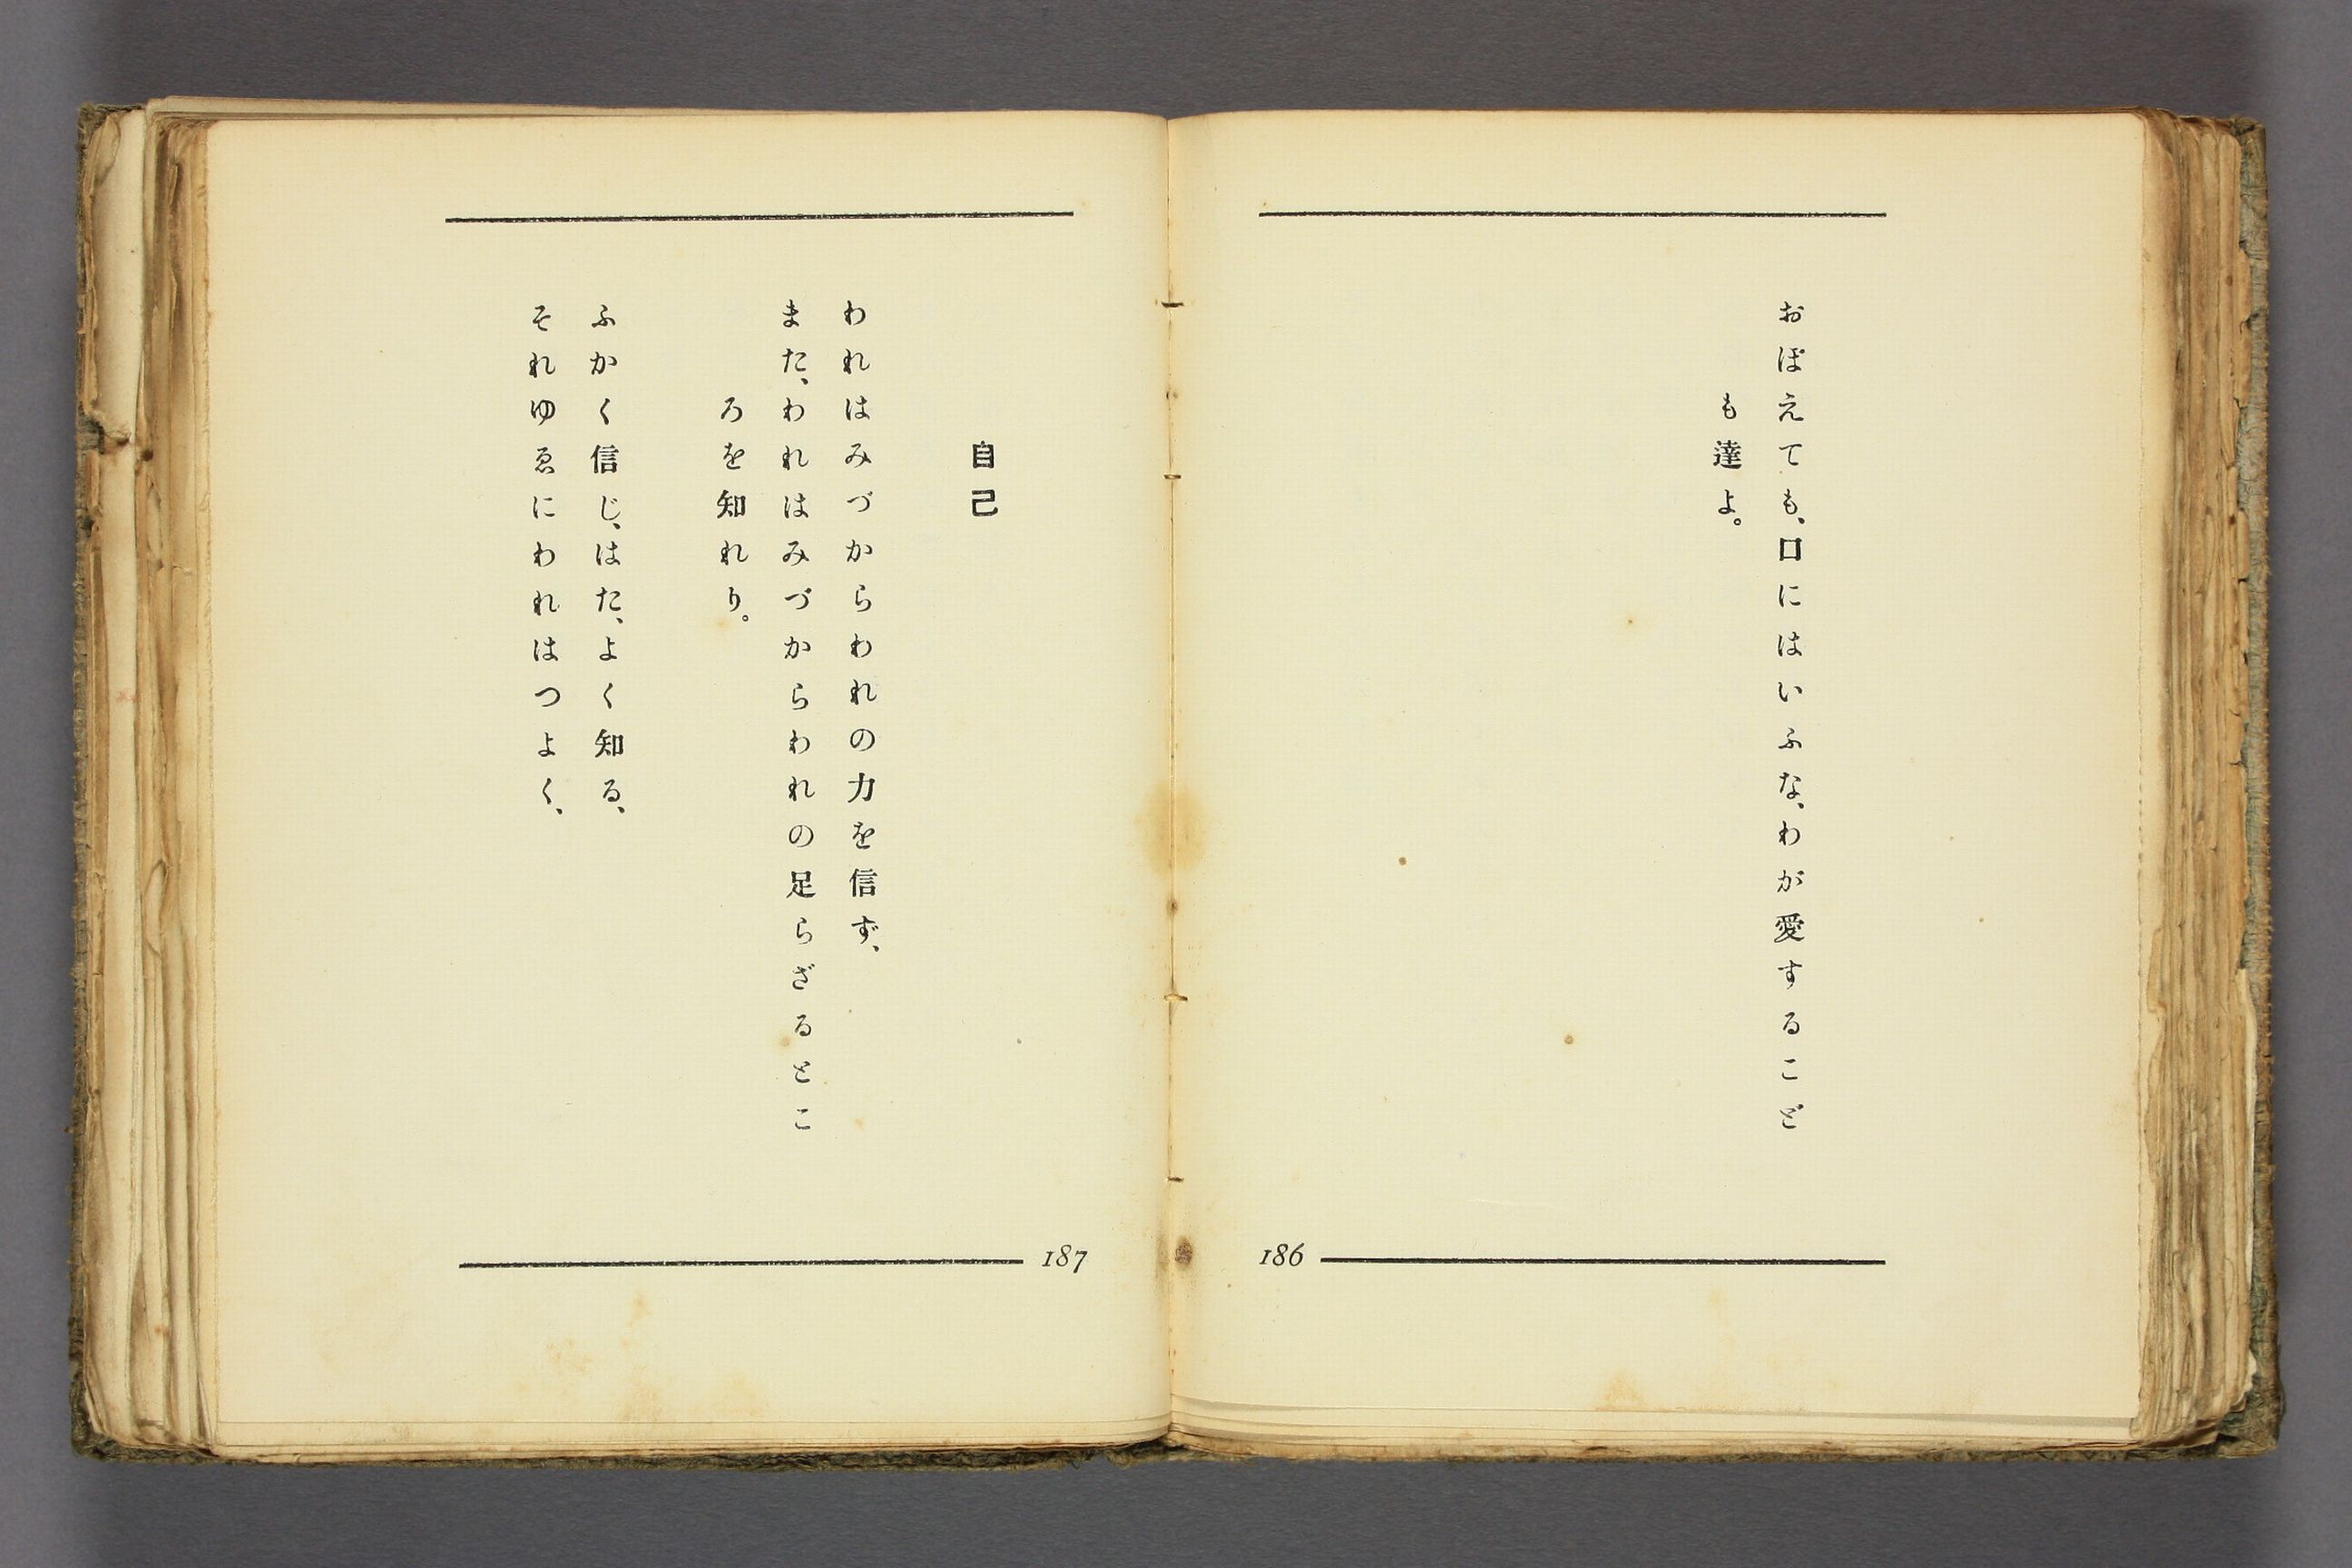 おぼえても、口にはいふな、わが愛するこど
も達よ。
186
自己
われはみづからわれの力を信ず、
また、われはみづからわれの足らざるとこ
ろを知れり。
ふかく信じ、はた、よく知る、
それゆゑにわれはつよく、
187